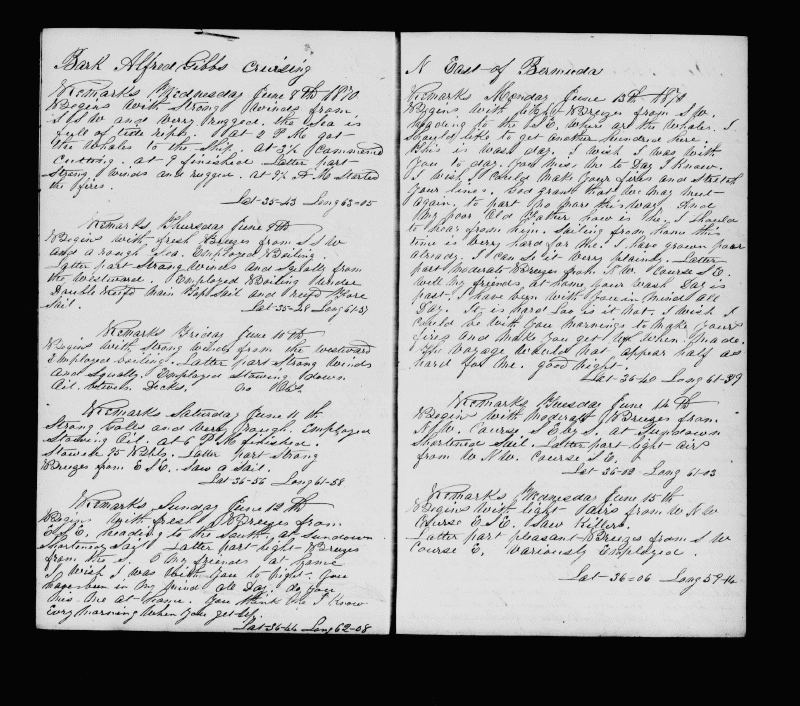 Bark Alfred Gibbs Cruising
Remarks Wednesday June 8th 1870
Begins with Strong Winds from
S S W and very rugged. the Sea is
full of tide rips. At 2 P M got
the Whales to the Ship. at 3½ Commenced
Cutting. at 9 finished Latter part
Strong winds and rugged. At 9½ A M Started
the fires.
Lat 35-43 Long 63-05
Remarks Thursday June 9th
Begins with fresh Breezes from S S W
and a rough Sea. Employed Boiling.
Latter part Strong Winds and Squally from
the Westward. Employed Boiling Under
Double Reefd Main Topsail and reefd Fore
Sail.
Lat 35-28 Long 61-37
Remarks Friday June 10th
Begins with Strong winds from the westward
Employed Boiling. Latter part Strong Winds
and Squally Employed Stowing down
Oil. between Decks. No Obs.
Remarks Saturday June 11th
Strong Gales and very rough. Employed
Stowing Oil. at 6 P M finished.
Stowed 95 Bbls. Latter part Strong
Breezes from E S E. Saw a Sail.
Lat 36-56 Long 61-58
Remarks Sunday June 12th
Begins with fresh Breezes from
heading to the South, at Sundown
Shortened Sail Latter part light Breezes
from the S. O My friends at home
I wish I was with you to night. You
have been in my mind all Day. do you
Miss Me at home. You think Me I Know
Evry morning When you get up.
Lat 36-44 Long 62-08
N East of Bermuda
Remarks Monday June 13th 1870
Begins with light Breezes from S W.
heading to the S E. Where are the Whales. I
Should like to get another hundred here.
This is wash day. I wish I was with
you to day. You miss me to Day I Know.
I wish I could make your fires and Stretch
your lines. God grant that We May meet
again. to part No more this way. And
My poor Old Father how is he. I Should
to hear from him. Sailing from home this
time is very hard for Me. I have grown poor
already. I can See it very plainly. Latter
part moderate Breezes from N W. Course S E.
well My friends at home your Wash Day is
past. I have been with you in Mind all
Day. It is hard is it not. I wish I
could be with you Mornings to Make your
fires and Make you get up When Made.
The Voyage Would not appear half as
hard for Me. good night.
Lat 36-40 Long 61-39
Remarks Tuesday June 14th
Begins with Moderate Breezes from
N W. Course S E by S. at Sundown
Shortened Sail. Latter part light airs
from W N W. Course S E.
Lat 36-02 Long 61-03
Remarks Wednesday June 15th
Begins with light Airs from W N W
Course E S E. Saw Killers.
Latter part pleasant Breezes from S W
Course E. Variously Employed.
Lat 36=06 Long 59-14